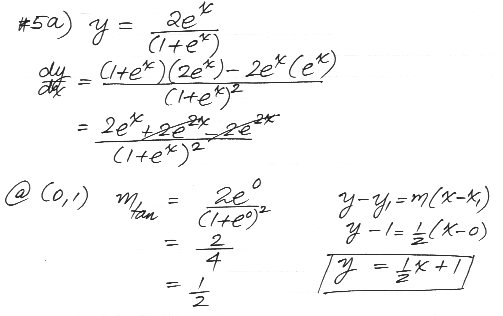 #5a) y = 2e^x / (1+e^x)
dy/dx = ((1+e^x)(2e^x) - 2e^x(e^x)) / (1+e^x)^2
= (2e^x + 2e^2x - 2e^2x) / (1+e^x)^2
@ (0,1) m_tan = 2e^0 / (1+e^0)^2
= 2/4
= 1/2
y-y_1 = m(x-x_1)
y-1 = 1/2(x-0)
y = 1/2x + 1